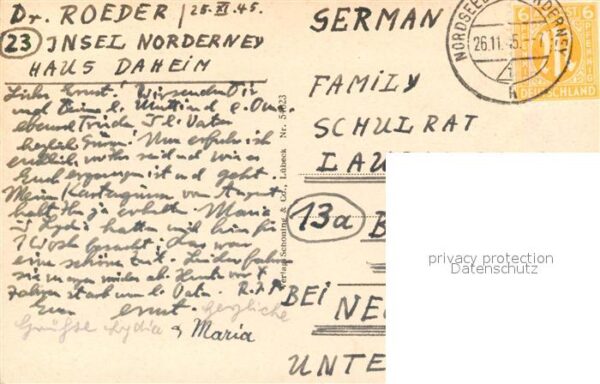 Dr. ROEDER / 25. XI. 45.
23 INSEL NORDERNEY
HAUS DAHEIM
Lieber Ernst! Wir senden Dir
und Deiner l. Mutti und l. Oma
ebenso Trude, I. l. Vater
herzl. Grüsse! Nun erfuhr ich
endlich, wo Ihr seid und wie es
Euch ergangen ist und geht.
Meinen Kartengruss vom August
habt Ihr ja erhalten. Maria
u. Lydia hatten mich hier für
? Woch besucht; das war
eine schöne Zeit. Leider fahren
sie morgen wieder ab. Heute vor
Jahren starb uns l. Vater. R.I.P.
Euer Ernst. herzliche
Grüsse Lydia
u. Maria
Verlag Schöning & Co., Lübeck Nr. 5
GERMAN
FAMILY
SCHULRAT
LAU
13a B
BEI NE
UNTE
NORDSEEB NORDERNEY
26.11.
6 6
DEUTSCHLAND
privacy protection
Datenschutz